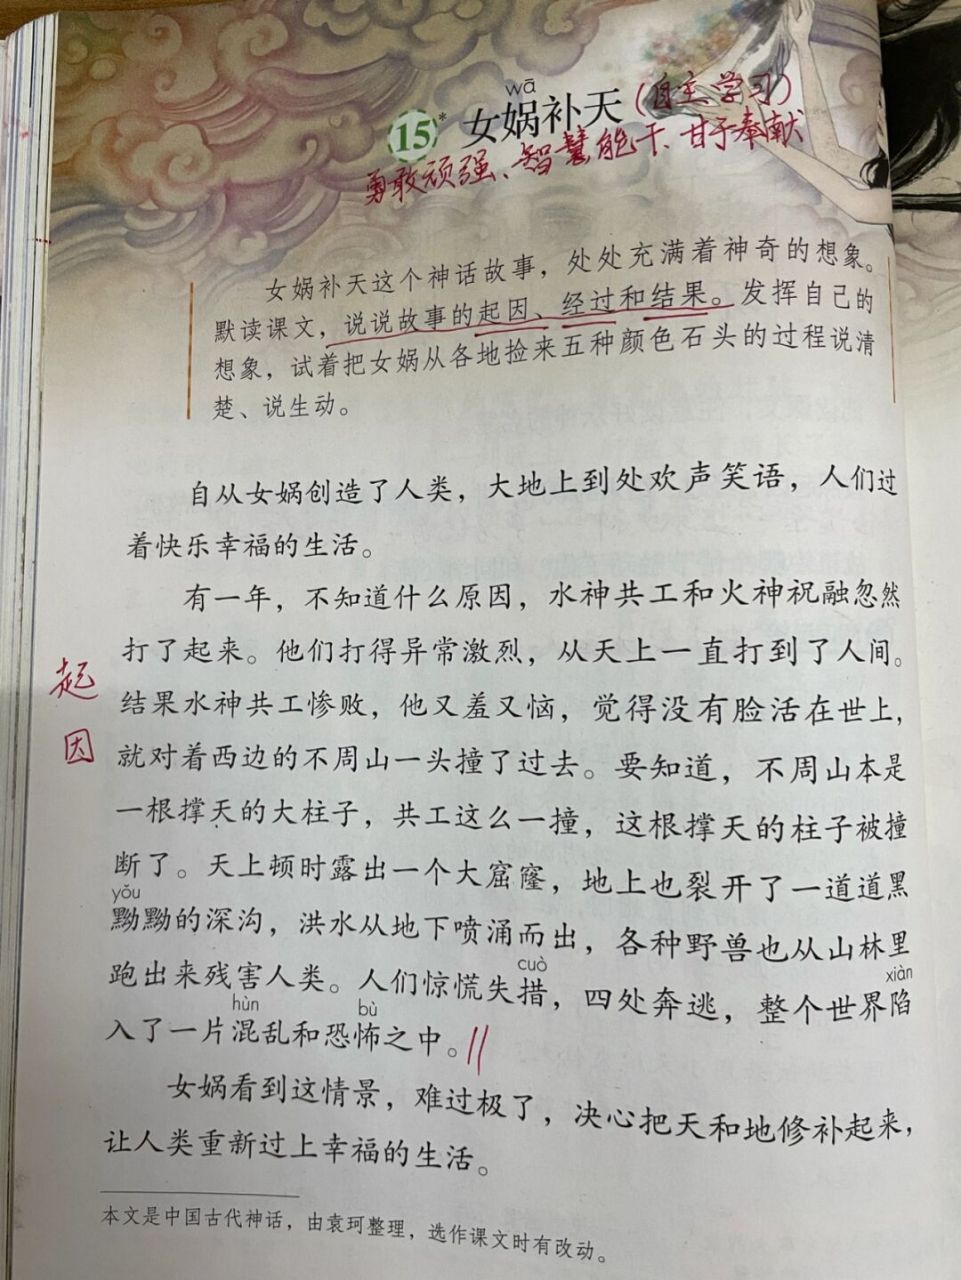 wā
15* 女娲补天(自主学习)
勇敢顽强、智慧能干、甘于奉献
女娲补天这个神话故事，处处充满着神奇的想象。
默读课文，说说故事的起因、经过和结果。发挥自己的
想象，试着把女娲从各地捡来五种颜色石头的过程说清
楚、说生动。
自从女娲创造了人类，大地上到处欢声笑语，人们过
着快乐幸福的生活。
有一年，不知道什么原因，水神共工和火神祝融忽然
打了起来。他们打得异常激烈，从天上一直打到了人间。
起因
结果水神共工惨败，他又羞又恼，觉得没有脸活在世上，
就对着西边的不周山一头撞了过去。要知道，不周山本是
一根撑天的大柱子，共工这么一撞，这根撑天的柱子被撞
断了。天上顿时露出一个大窟窿，地上也裂开了一道道黑
yǒu
黝黝的深沟，洪水从地下喷涌而出，各种野兽也从山林里
cuò
跑出来残害人类。人们惊慌失措，四处奔逃，整个世界陷
hùn bù xiàn
入了一片混乱和恐怖之中。
女娲看到这情景，难过极了，决心把天和地修补起来，
让人类重新过上幸福的生活。
本文是中国古代神话，由袁珂整理，选作课文时有改动。